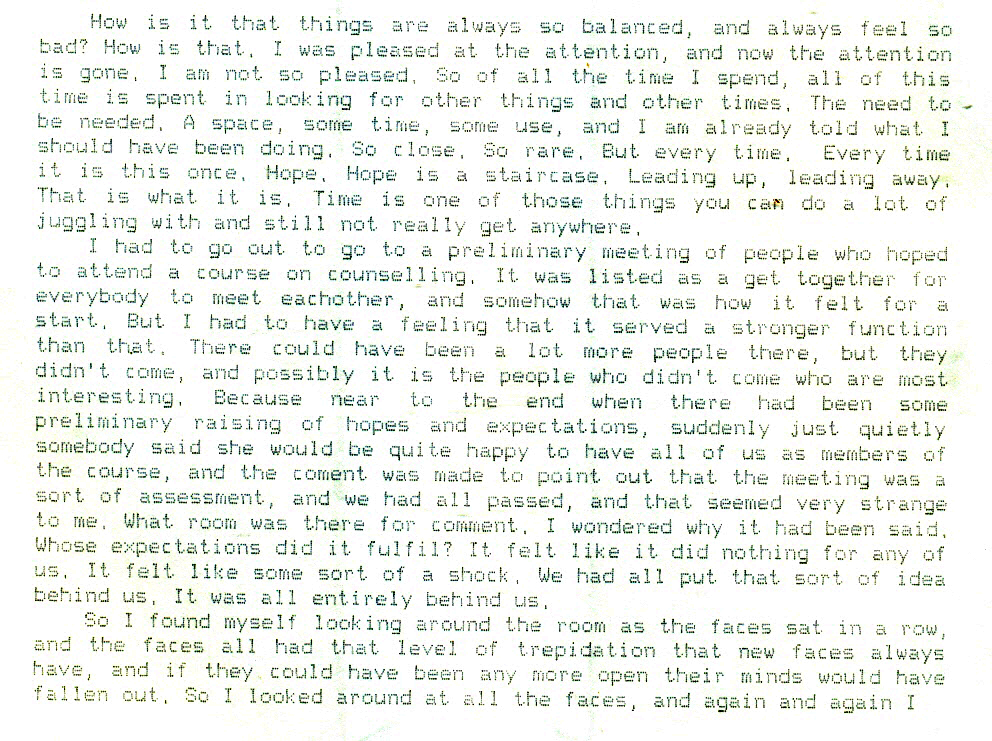 How is it that things are always so balanced, and always feel so
bad? How is that. I was pleased at the attention, and now the attention
is gone. I am not so pleased. So of all the time I spend, all of this
time is spent in looking for other things and other times. The need to
be needed. A space, some time, some use, and I am already told what I
should have been doing. So close. So rare. But every time.  Every time
it is this once. Hope. Hope is a staircase. Leading up, leading away.
That is what it is. Time is one of those things you can do a lot of
juggling with and still not really get anywhere.
I had to go out to go to a preliminary meeting of people who hoped
to attend a course on counselling. It was listed as a get together for
everybody to meet eachother, and somehow that was how it felt for a
start. But I had to have a feeling that it served a stronger function
than that. There could have been a lot more people there, but they
didn't come, and possibly it is the people who didn't come who are most
interesting. Because near to the end when there had been some
preliminary raising of hopes and expectations, suddenly just quietly
somebody said she would be quite happy to have all of us as members of
the course, and the coment was made to point out that the meeting was a
sort of assessment, and we had all passed, and that seemed very strange
to me. What room was there for comment. I wondered why it had been said.
Whose expectations did it fulfil? It felt like it did nothing for any of
us. It felt like some sort of a shock. We had all put that sort of idea
behind us. It was all entirely behind us.
So I found myself looking around the room as the faces sat in a row,
and the faces all had that level of trepidation that new faces always
have, and if they could have been any more open their minds would have
fallen out. So I looked around at all the faces, and again and again I